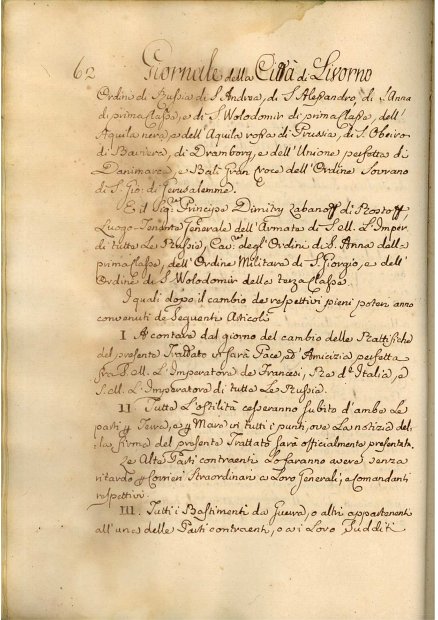 62 Giornale della Città di Livorno
Ordine di Russia di S. Andrea, di S. Alessandro, di S. Anna
di prima Classe, e di S. Wolodomir di prima Classe, dell'
Aquila nera, e dell'Aquila rossa di Prussia, di S. Oberto
di Baviera, di Dramborg, e dell'Unione perfetta di
Danimarca, e Balì Gran Croce dell'Ordine Sovrano
di S. Gio: di Jerusalemme.
E il Sig. Principe Dimitry Labanoff di Rostoff,
Luogo-Tenente Generale dell'Armate di S. M. L'Imper.
di tutte Le Russie, Cav. degl'Ordini di S. Anna della
prima Classe, dell'Ordine Militare di S. Giorgio, e dell'
Ordine di S. Wolodomir della terza Classe.
I quali dopo il cambio de respettivi pieni poteri anno
convenuti de Seguenti Articoli
I A contare dal giorno del cambio delle Rattifiche
del presente Trattato vi sarà Pace, ed Amicizia perfetta
fra S. M. L'Imperatore de Francesi, Re d'Italia, e
S. M. L'Imperatore di tutte Le Russie.
II Tutte L'Ostilità cesseranno subito d'ambe Le
parti p Terra, e p Mare in tutti i punti, ove La notizia del
la firma del presente Trattato sarà officialmente presentata.
Le Alte Parti contraenti Lo faranno avere senza
ritardo p Corrieri Straordinari a Loro Generali, e Comandanti
respettivi.
III. Tutti i Bastimenti da Guerra, o altri appartenenti
all'una delle Parti contraenti, o ai Loro Sudditi